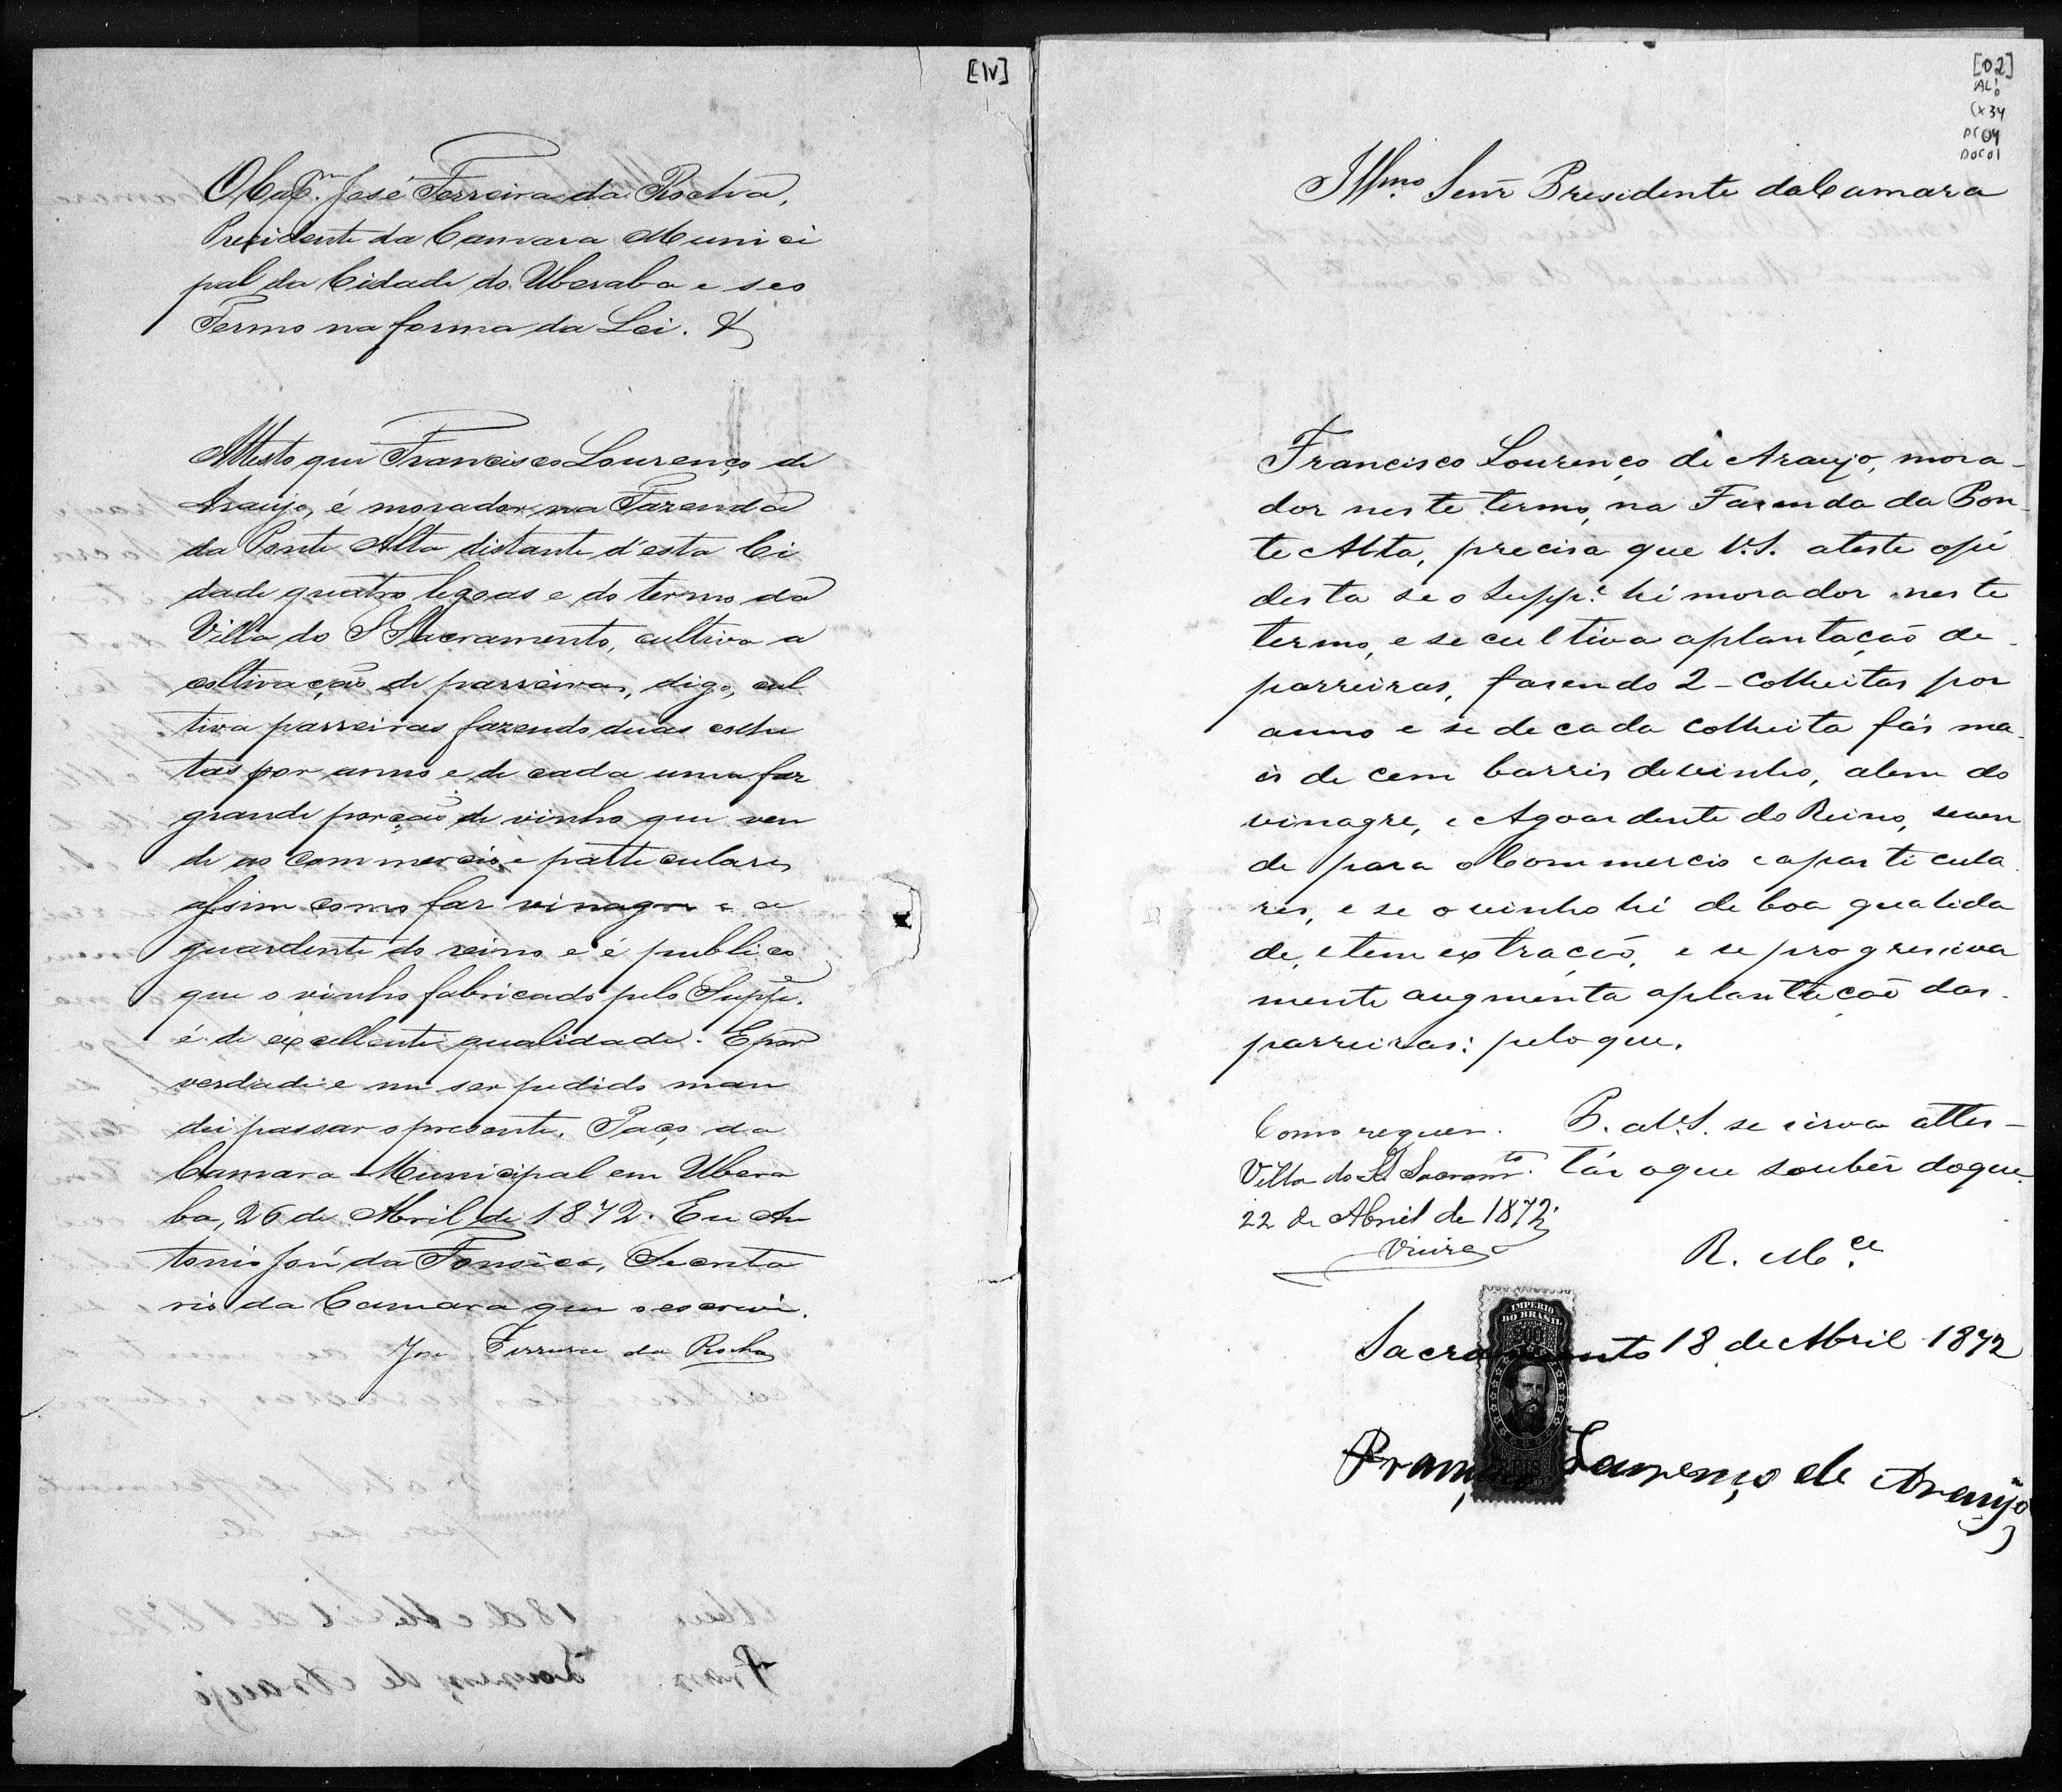 [1v]
O Cap.m José Ferreira da Rocha,
Prezidente da Camara Munici
pal da Cidade do Uberaba e seo
Termo na forma da Lei. &
Attesto que Francisco Lourenço de
Araujo, é morador na Fazenda
da Ponte Alta distante d'esta Ci
dade quatro legoas e do termo da
Villa do S Sacramento, cultiva a
coltivação de parreiras, digo, cul
tiva parreiras fazendo duas colhe
tas por anno e de cada uma faz
grande porção de vinho que ven
de ao commercio e particulares
assim como faz vinagre e a
guardente do reino e é publico
que o vinho fabricado pelo Suppe.
é de excellente qualidade. E por
verdade e me ser pedido man
dei passar o presente. Paço da
Camara Municipal em Ubera
ba, 26 de Abril de 1872. Eu An
tonio José da Fonseca, Secreta
rio da Camara que o escrevi.
José Ferreira da Rocha
[02]
Cx 34
DOC 01
Illmo. Senr Presidente da Camara
Francisco Lourenço de Araujo, mora-
dor neste termo, na Fasenda da Pon-
te Alta, precisa que V.S. ateste opé
desta se o Supp.e hé morador neste
termo, e se cultiva aplantação de
parreiras, fasendo 2-Colheitas por
anno e se de cada colheita fás ma-
is de cem barris devinho, alem do
vinagre, e Agoardente do Reino, seven
de para o Commercio e aparticula
res, e se o vinho hé de boa qualida
de, etem extração, e se progresiva
mente augmenta aplantação das
parreiras: peloque.
P. a V.S. se sirva attes-
tár oque soubér doque
R. M.ce
Como requer.
Villa do SS Sacramto.
22 de Abril de 1872.
Vieira
Sacramento 18 de Abril 1872
IMPERIO
DO BRASIL
200
Francisco Lourenço de Araujo